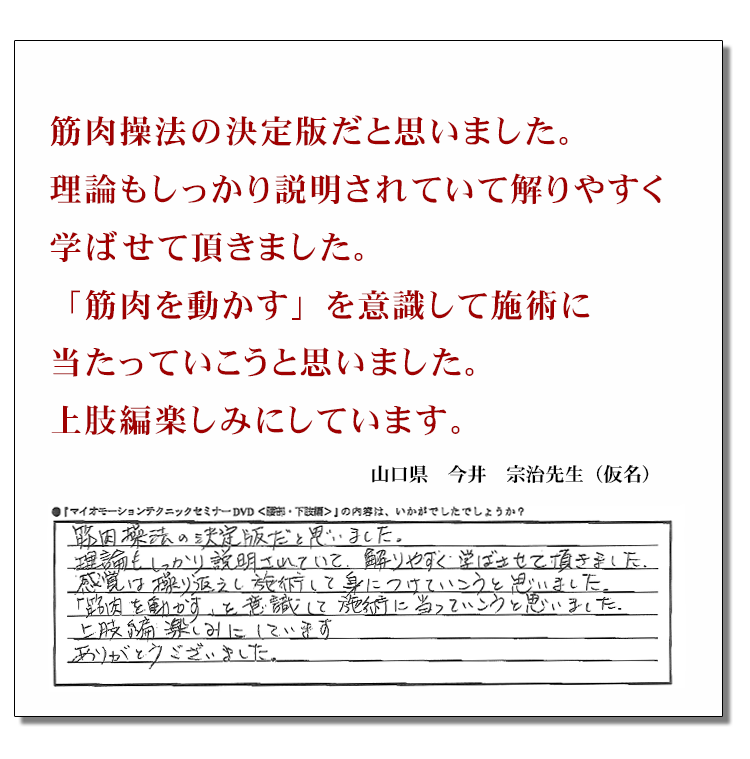 筋肉操法の決定版だと思いました。
理論もしっかり説明されていて解りやすく
学ばせて頂きました。
「筋肉を動かす」を意識して施術に
当たっていこうと思いました。
上肢編楽しみにしています。
山口県　今井　宗治先生（仮名）
●『マイオモーションテクニックセミナーDVD＜腰部・下肢編＞』の内容は、いかがでしたでしょうか？
筋肉操法の決定版だと思いました。
理論もしっかり説明されていて、解りやすく学ばさせて頂きました。
感覚は繰り返えし施術して身につけていこうと思いました。
「筋肉を動かす」と意識して施術に当っていこうと思いました。
上肢編楽しみにしています
ありがとうございました。